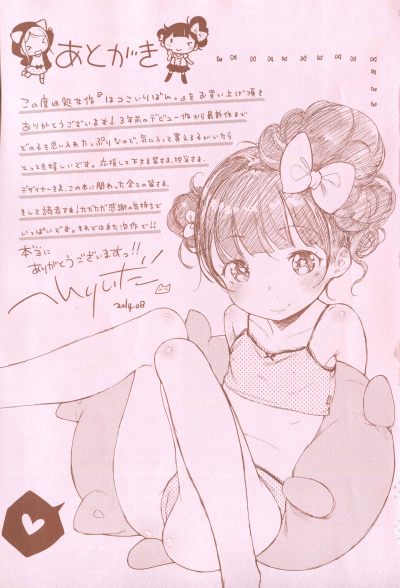 あとがき
この度は処女作『はつこいりぼん。』をお買い上げ頂き
ありがとうございます！3年前のデビュー作から最新作まで
どの子も思い入れたっぷりなので、気に入って貰える子がいたら
とっても嬉しいです。応援して下さる皆さま、担当さま、
デザイナーさま、この本に関わった全ての皆さま、
そして読者さま！ただただ感謝の気持ちで
いっぱいです。それではまた次作で!!
本当に
ありがとうございますっ!!
2014.08